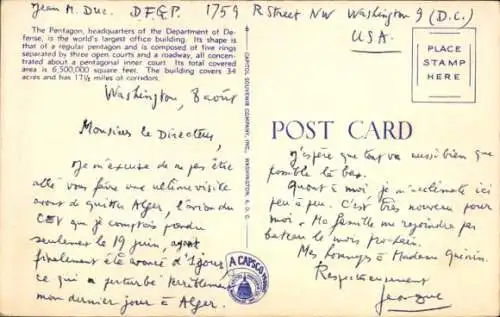 Jean M. Duc. D.F.G.P. 1759 R Street NW Washington 9 (D.C.)
USA.
The Pentagon, headquarters of the Department of De-
fense, is the world's largest office building. Its shape is
that of a regular pentagon and is composed of five rings
separated by three open courts and a roadway, all concen-
trated about a pentagonal inner court. Its total covered
area is 6,500,000 square feet. The building covers 34
acres and has 17½ miles of corridors.
Washington, 8 août
Monsieur le Directeur,
Je m'excuse de ne pas être
allé vous faire une ultime visite
avant de quitter Alger, l'avion du
que je comptais prendre
seulement le 19 juin, ayant
finalement été avancé d'1 jour,
ce qui a perturbé terriblement
mon dernier jour à Alger.
CAPITOL SOUVENIR COMPANY, INC., WASHINGTON, D. C.
A CAPSCO
PLACE
STAMP
HERE
POST CARD
J'espère que tout va aussi bien que
possible là bas.
Quant à moi, je m'acclimate ici
peu à peu. C'est très nouveau pour
moi. Ma famille me rejoindra par
bateau le mois prochain.
Mes hommages à Madame
Respectueusement